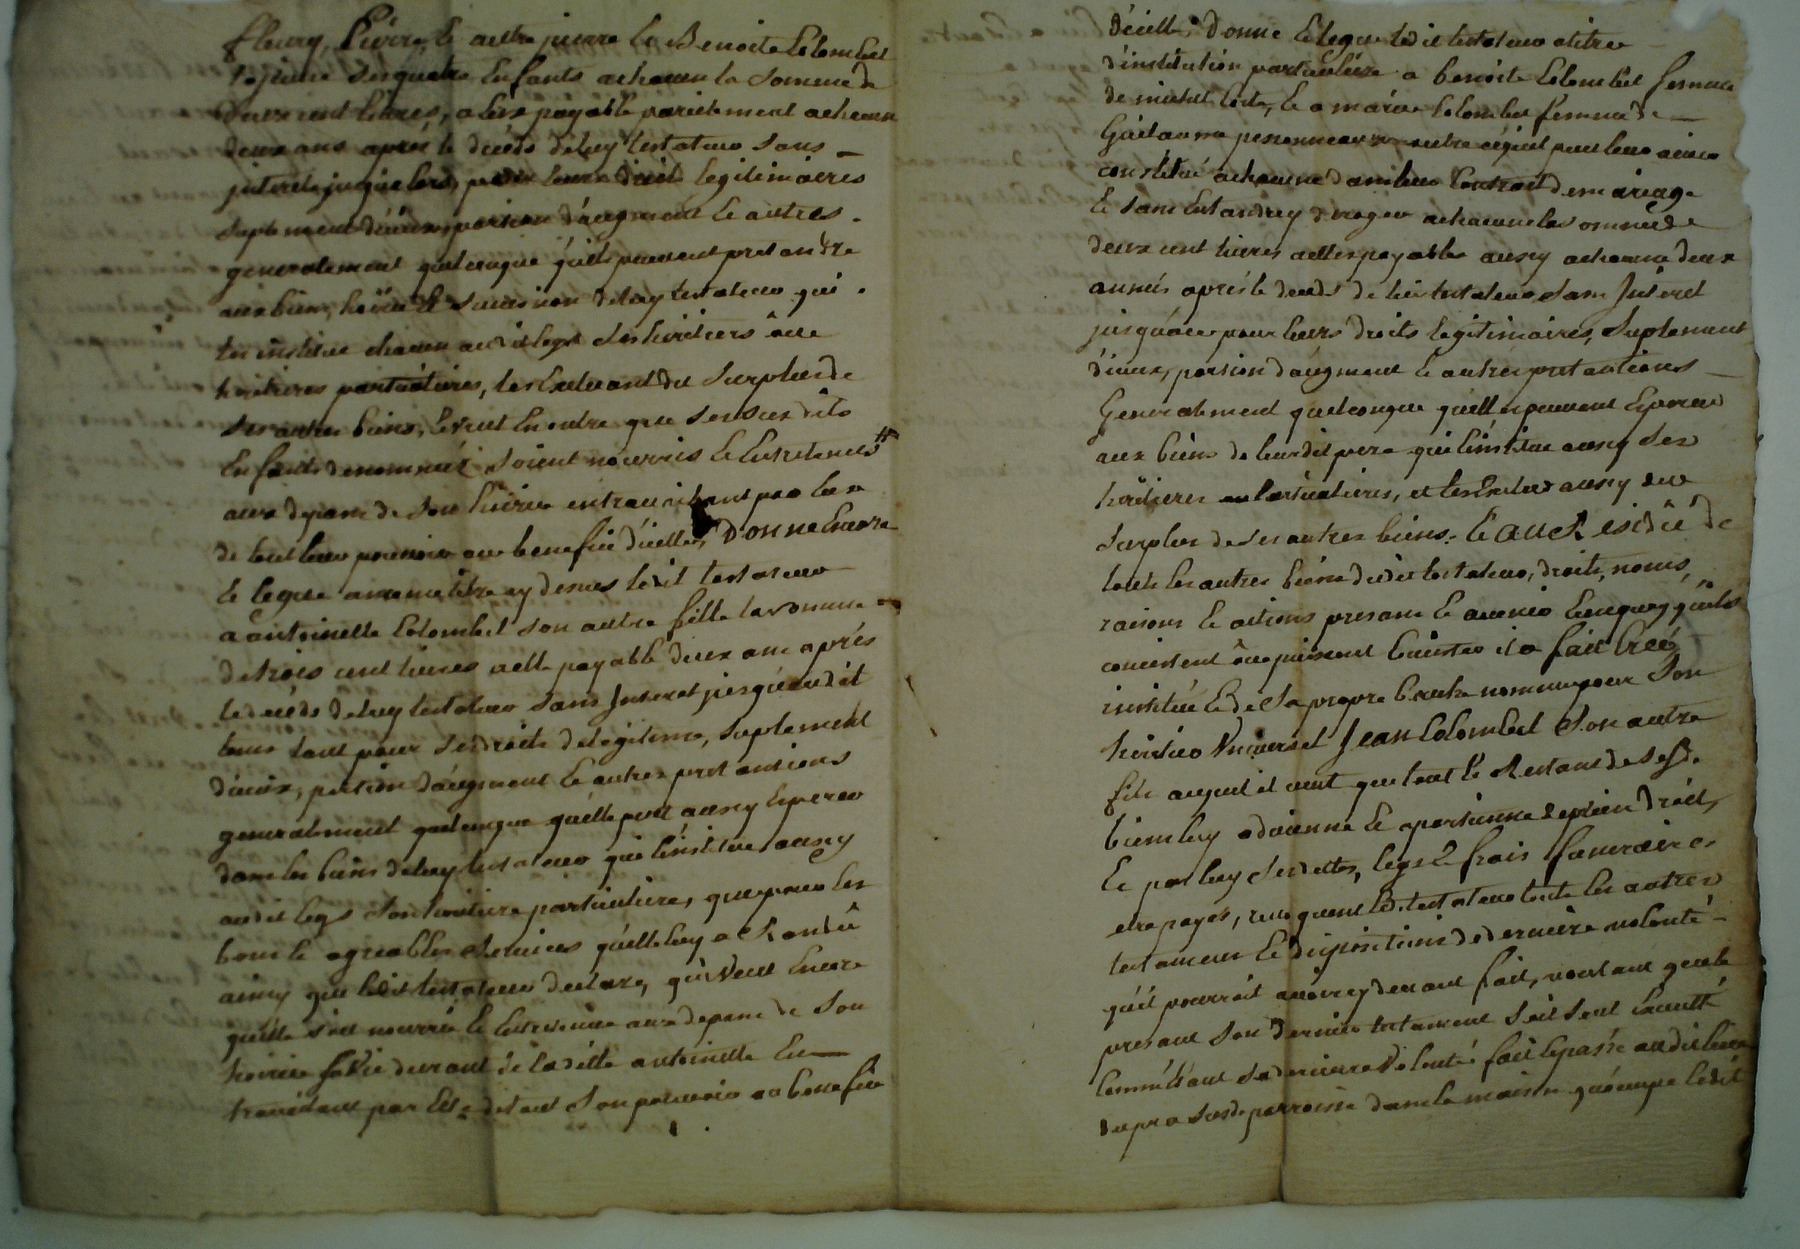 fleury, Pierre, & autre pierre & Benoite Colombet
sesquatre Enfants achacun la Somme de
deux cent livres, a Eux payable pariclement achacun
deux ans après le décéds deluy testateur Sans
jnterets jusqualors, pour leurs droits legitimaires
suplement d'iceux, portion d'augment & autres
generalement quelconque qu'ils peuvent pretandre
aux biens, hoirie & Succession deluy testateur qui
les institue chacun audit legs Ses heritiers & une
heritieres particulieres, les Excluant du Surplus de
Ses autres biens, Et veut En outre que Sesdits
Enfants denommés Soient nourris & Entretenus #
aux depans de Son hoirie entravaillant par Eux
de tout leur pouvoir au benefice d'icelle, Donne Encore
& legue amême titre cy dessus ledit testateur
a antoinette Colombet Son autre fille la Somme
de trois cent livres a elle payable deux ans après
le décéds deluy testateur Sans Jnteret jusqu'audit
tems tout pour Ses droits de legitime, suplement
d'iceux, portion d'augment & autres pretantions
generalement quelconque qu'elle peut aussy Esperer
dans les biens deluy testateur qui l'institue aussy
audit legs Son heritiere particuliere, que pour les
bons & agreables Services qu'elle luy a Randû
ainsy que ledit testateur declare, qui Veut Encore
quelle Soit nourrie & Entretenue aux depans de Son
hoirie Savie durant de ladite antoinette En
travaillant par Elle detout Son pouvoir au benefice
d'icelle. Donne & legue ledit testateur atitre
d'institution particulière a benoite Colombet femme
de michel & a marie Colombet femme de
Guillaume outre cequil peut leur avoir
constitué achacune dans leur Contract demariage
& Sans Entandre y deroger achacune la Somme de
deux cent livres aelles payables aussy achacune deux
années après le decéds de luy testateur Sans Jnteret
jusqu'alors pour leurs droits legitimaires, Suplement
d'iceux, portion d'augment & autres pretantions
Generalement quelconque qu'elles peuvent Esperer
aux biens de leurdit pere qui les institue aussy Ses
heritieres particulieres, et les Exclud aussy du
Surplus de Ses autres biens. & au Residû de
touts les autres biens dudit testateur, droits, noms,
raisons & actions presans & avenir Enquoy qu'ils
consistent & puissent Consister il a fait Créé
institué & de Sa propre bouche nommé pour Son
heritier Vniversel Jean Colombet Son autre
fils auquel il veut que tout le Restant de Sesd.
biens luy advienne & apartienne deplein droit,
& par luy Ses dettes, legs & frais funeraires
etre payés, revoquant ledit testateur touts les autres
testamens & dispositions de derniere volonté
qu'il pourroit avoir cy devant fait, voulant que le
present Son dernier testament Soit Seul executé
Comme Etant Sa derniere Volonté fait & passé audit lieu
Susde parroisse dans la maison qu'occupe ledit